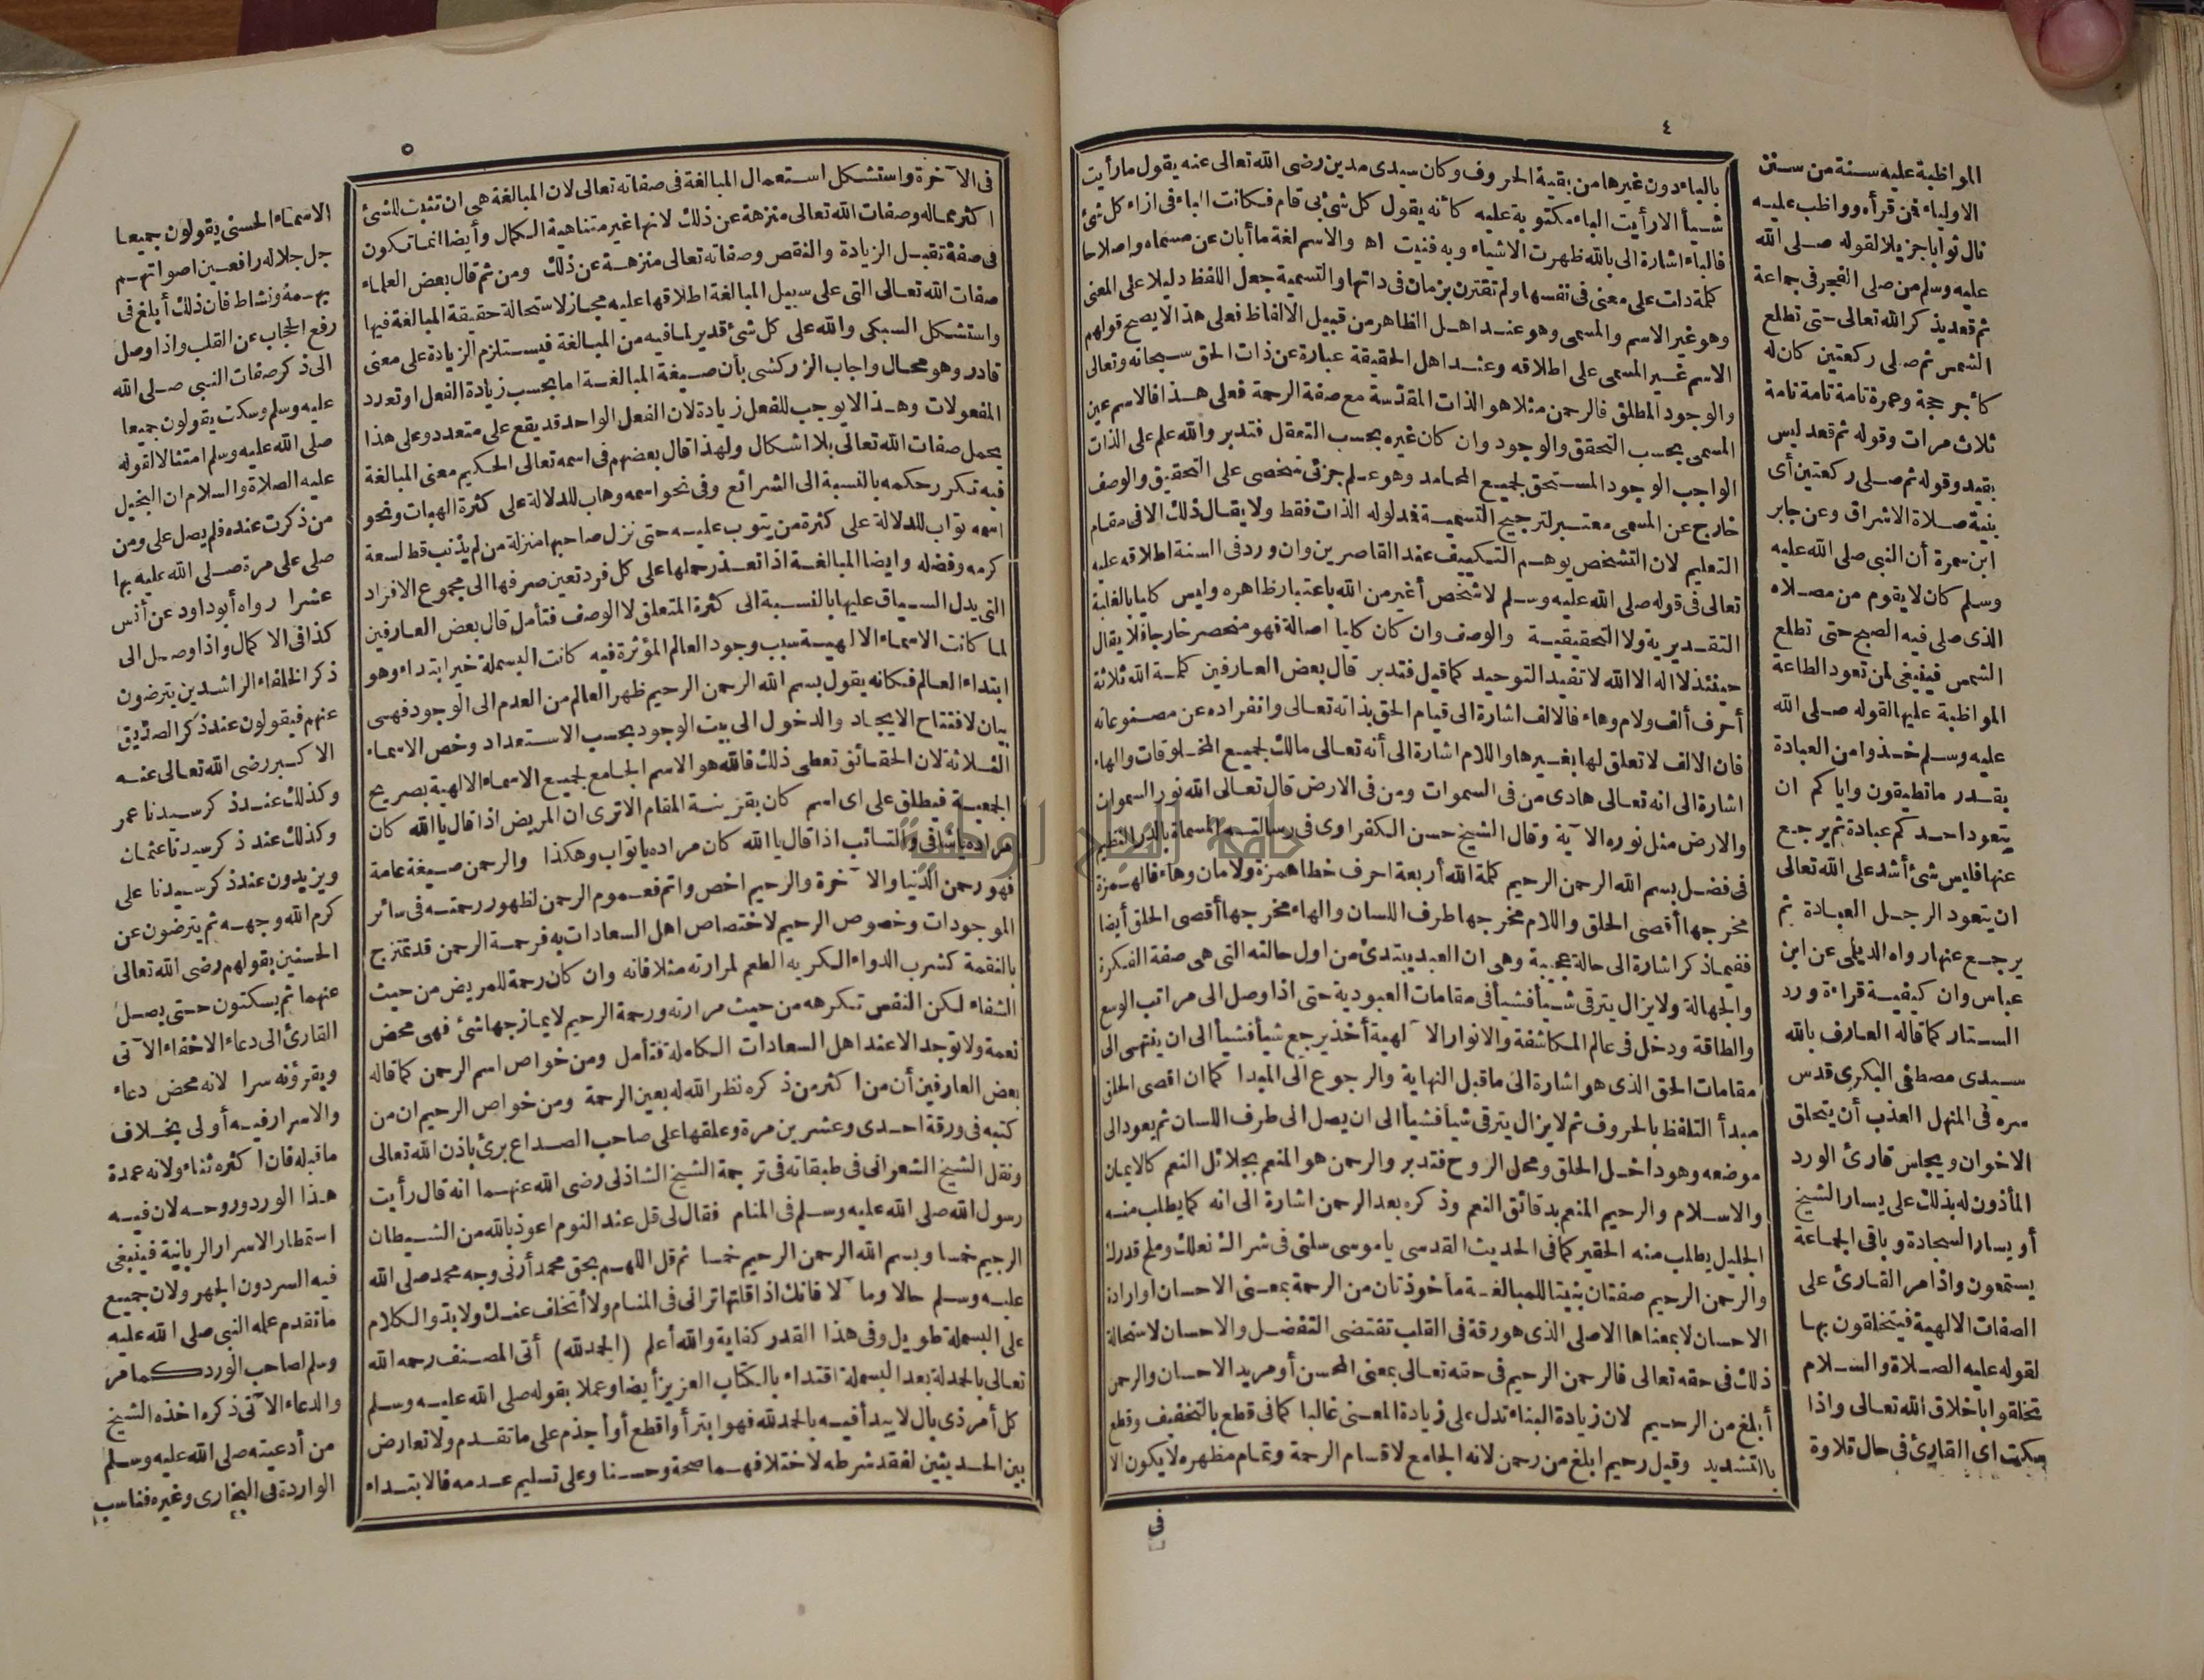 ٤
بالباء دون غيرها من بقية الحروف وكان سيدى مدين رضى الله تعالى عنه يقول ما رأيت
شيأ الا رأيت الباء مكتوبة عليه كأنه يقول كل شئ بى قام فكانت الباء فى ازاء كل شئ
فالباء اشارة الى بالله ظهرت الاشياء وبه فنيت اه والاسم لغة ما أبان عن مسماه واصلاحا
كلمة دات على معنى فى نفسها ولم تقترن بزمان فى ذاتها والتسمية جعل اللفظ دليلا على المعنى
وهو غير الاسم والمسمى وهو عند اهل الظاهر من قبيل الالفاظ فعلى هذا لا يصح قولهم
الاسم غير المسمى على اطلاقه وعند اهل الحقيقة عبارة عن ذات الحق سبحانه وتعالى
والوجود المطلق فالرحمن مثلا هو الذات المقدسة مع صفة الرحمة فعلى هذا فالاسم عين
المسمى بحسب التحقق والوجود وان كان غيره بحسب التعقل فتدبر والله علم على الذات
الواجب الوجود المستحق لجميع المحامد وهو علم جزئى شخصى على التحقيق والوصف
خارج عن المسمى معتبر لترجيح التسمية فمدلوله الذات فقط ولا يقال ذلك الا فى مقام
التعليم لان التشخص يوهم التكييف عند القاصرين وان ورد فى السنة اطلاقه عليه
تعالى فى قوله صلى الله عليه وسلم لا شخص أغير من الله باعتبار ظاهره وليس كليا بالغلبة
التقديرية ولا التحقيقية والوصف وان كان كليا اصالة فهو منحصر خارجا فلا يقال
حينئذ لا اله الا الله لا تفيد التوحيد كما قيل فتدبر قال بعض العارفين كلمة الله ثلاثة
أحرف ألف ولام وهاء فالالف اشارة الى قيام الحق بذاته تعالى وانفراده عن مصنوعاته
فان الالف لا تعلق لها بغيرها واللام اشارة الى أنه تعالى مالك لجميع المخلوقات والهاء
اشارة الى انه تعالى هادى من فى السموات ومن فى الارض قال تعالى الله نور السموات
والارض مثل نوره الآية وقال الشيخ حسن الكفراوى فى رسالته المسماة بالدر النظيم
فى فضل بسم الله الرحمن الرحيم كلمة الله أربعة احرف خطا همزة ولامان وهاء فالهمزة
مخرجها أقصى الحلق واللام مخرجها طرف اللسان والهاء مخرجها أقصى الحلق أيضا
ففيما ذكر اشارة الى حالة عجيبة وهى ان العبد يبتدئ من اول حالته التى هى صفة الفكرة
والجهالة ولا يزال يترقى شيأ فشيأ فى مقامات العبودية حتى اذا وصل الى مراتب الوسع
والطاقة ودخل فى عالم المكاشفة والانوار الالهية أخذ يرجع شيأ فشيأ الى ان ينتهى الى
مقامات الحق الذى هو اشارة الى ما قبل النهاية والرجوع الى المبدا كما ان اقصى الحلق
مبدأ التلفظ بالحروف ثم لا يزال يترقى شيأ فشيأ الى ان يصل الى طرف اللسان ثم يعود الى
موضعه وهو داخل الحلق ومحل الروح فتدبر والرحمن هو المنعم بجلائل النعم كالايمان
والاسلام والرحيم المنعم بدقائق النعم وذكره بعد الرحمن اشارة الى انه كما يطلب منه
الجليل يطلب منه الحقير كما فى الحديث القدسى يا موسى سلنى فى شراك نعلك وملح قدرك
والرحمن الرحيم صفتان بنيتا للمبالغة مأخوذتان من الرحمة بمعنى الاحسان او ارادة
الاحسان لا بمعناها الاصلى الذى هو رقة فى القلب تقتضى التفضل والاحسان لاستحالة
ذلك فى حقه تعالى فالرحمن الرحيم فى حقه تعالى بمعنى المحسن أو مريد الاحسان والرحمن
أبلغ من الرحيم لان زيادة البناء تدل على زيادة المعنى غالبا كما فى قطع بالتخفيف وقطع
بالتشديد وقيل رحيم ابلغ من رحمن لانه الجامع لاقسام الرحمة وتمام مظهره لا يكون الا
فى
المواظبة عليه سنة من سنن
الاولياء فمن قرأه وواظب عليه
نال ثوابا جزيلا لقوله صلى الله
عليه وسلم من صلى الفجر فى جماعة
ثم قعد يذكر الله تعالى حتى تطلع
الشمس ثم صلى ركعتين كان له
كأجر حجة وعمرة تامة تامة تامة
ثلاث مرات وقوله ثم قعد ليس
بقيد وقوله ثم صلى ركعتين أى
بنية صلاة الاشراق وعن جابر
ابن سمرة أن النبى صلى الله عليه
وسلم كان لا يقوم من مصلاه
الذى صلى فيه الصبح حتى تطلع
الشمس فينبغى لمن تعود الطاعة
المواظبة عليها لقوله صلى الله
عليه وسلم خذوا من العبادة
بقدر ما تطيقون واياكم ان
يتعود احدكم عبادة ثم يرجع
عنها فليس شئ أشد على الله تعالى
ان يتعود الرجل العبادة ثم
يرجع عنها رواه الديلمى عن ابن
عباس وان كيفية قراءة ورد
الستار كما قاله العارف بالله
سيدى مصطفى البكرى قدس
سره فى المنهل العذب أن يتحلق
الاخوان ويجلس قارئ الورد
المأذون له بذلك على يسار الشيخ
أو يسار السجادة وباقى الجماعة
يستمعون واذا مر القارئ على
الصفات الالهية فيتخلقون بها
لقوله عليه الصلاة والسلام
تخلقوا باخلاق الله تعالى واذا
سكت اى القارئ فى حال تلاوة
٥
فى الآخرة واستشكل استعمال المبالغة فى صفاته تعالى لان المبالغة هى ان تثبت للشئ
اكثر مما له وصفات الله تعالى منزهة عن ذلك لانها غير متناهية الكمال وأيضا انما تكون
فى صفة تقبل الزيادة والنقص وصفاته تعالى منزهة عن ذلك ومن ثم قال بعض العلماء
صفات الله تعالى التى على سبيل المبالغة اطلاقها عليه مجاز لاستحالة حقيقة المبالغة فيها
واستشكل السبكى والله على كل شئ قدير لما فيه من المبالغة فيستلزم الزيادة على معنى
قادر وهو محال واجاب الزركشى بأن صيغة المبالغة اما بحسب زيادة الفعل او تعدد
المفعولات وهذا لا يوجب للفعل زيادة لان الفعل الواحد قد يقع على متعدد وعلى هذا
يحمل صفات الله تعالى بلا اشكال ولهذا قال بعضهم فى اسمه تعالى الحكيم معنى المبالغة
فيه تكرر حكمه بالنسبة الى الشرائع وفى نحو اسمه وهاب للدلالة على كثرة الهبات ونحو
اسمه تواب للدلالة على كثرة من يتوب عليه حتى نزل صاحبها منزلة من لم يذنب قط لسعة
كرمه وفضله وايضا المبالغة اذا تعذر حملها على كل فرد تعين صرفها الى مجموع الافراد
التى يدل السياق عليها بالنسبة الى كثرة المتعلق لا الوصف فتأمل قال بعض العارفين
لما كانت الاسماء الالهية سبب وجود العالم المؤثرة فيه كانت البسملة خبر ابتداء وهو
ابتداء العالم فكانه يقول بسم الله الرحمن الرحيم ظهر العالم من العدم الى الوجود فهى
بيان لافتتاح الايجاد والدخول الى بيت الوجود بحسب الاستعداد وخص الاسماء
الثلاثة لان الحقائق تعطى ذلك فالله هو الاسم الجامع لجميع الاسماء الالهية بصريح
الجمعية فيطلق على اى اسم كان بقرينة المقام الا ترى ان المريض اذا قال يا الله كان
مراده يا شافى والتائب اذا قال يا الله كان مراده يا تواب وهكذا والرحمن صيغة عامة
فهو رحمن الدنيا والآخرة والرحيم اخص واتم فعموم الرحمن لظهور رحمته فى سائر
الموجودات وخصوص الرحيم لاختصاص اهل السعادات به فرحمة الرحمن قد تمتزج
بالنقمة كشرب الدواء الكريه الطعم لمرارته مثلا فانه وان كان رحمة للمريض من حيث
الشفاء لكن النفس تكرهه من حيث مرارته ورحمة الرحيم لا يمازجها شئ فهى محض
نعمة ولا توجد الا عند اهل السعادات الكاملة فتأمل ومن خواص اسم الرحمن كما قاله
بعض العارفين أن من اكثر من ذكره نظر الله له بعين الرحمة ومن خواص الرحيم ان من
كتبه فى ورقة احدى وعشرين مرة وعلقها على صاحب الصداع برئ باذن الله تعالى
ونقل الشيخ الشعرانى فى طبقاته فى ترجمة الشيخ الشاذلى رضى الله عنهما انه قال رأيت
رسول الله صلى الله عليه وسلم فى المنام فقال لى قل عند النوم اعوذ بالله من الشيطان
الرجيم خمسا وبسم الله الرحمن الرحيم خمسا ثم قل اللهم بحق محمد أرنى وجه محمد صلى الله
عليه وسلم حالا ومآلا فانك اذا قلتها ترانى فى المنام ولا أتخلف عنك ولا بد والكلام
على البسملة طويل وفى هذا القدر كفاية والله أعلم (الحمد لله) أتى المصنف رحمه الله
تعالى بالحمدلة بعد البسملة اقتداء بالكتاب العزيز أيضا وعملا بقوله صلى الله عليه وسلم
كل أمر ذى بال لا يبدأ فيه بالحمد لله فهو ابتر أو اقطع أو أجذم على ما تقدم ولا تعارض
بين الحديثين لفقد شرطه لاختلافهما صحة وحسنا وعلى تسليم عدمه فالابتداء
الاسماء الحسنى يقولون جميعا
جل جلاله رافعين اصواتهم
بهمة ونشاط فان ذلك أبلغ فى
رفع الحجاب عن القلب واذا وصل
الى ذكر صفات النبى صلى الله
عليه وسلم وسكت يقولون جميعا
صلى الله عليه وسلم امتثالا لقوله
عليه الصلاة والسلام ان البخيل
من ذكرت عنده فلم يصل على ومن
صلى على مرة صلى الله عليه بها
عشرا رواه أبو داود عن أنس
كذا فى الاكمال واذا وصل الى
ذكر الخلفاء الراشدين يترضون
عنهم فيقولون عند ذكر الصديق
الاكبر رضى الله تعالى عنه
وكذلك عند ذكر سيدنا عمر
وكذلك عند ذكر سيدنا عثمان
ويزيدون عند ذكر سيدنا على
كرم الله وجهه ثم يترضون عن
الحسنين بقولهم رضى الله تعالى
عنهما ثم يسكتون حتى يصل
القارئ الى دعاء الاختفاء الآتى
ويقرؤنه سرا لانه محض دعاء
والاسرار فيه أولى بخلاف
ما قبله فان اكثره ثناء ولانه عمدة
هذا الورد وروحه لان فيه
استمطار الاسرار الربانية فينبغى
فيه السر دون الجهر ولان جميع
ما تقدم عمله النبى صلى الله عليه
وسلم لصاحب الورد كما مر
والدعاء الآتى ذكره اخذه الشيخ
من أدعيته صلى الله عليه وسلم
الواردة فى البخارى وغيره فناسب